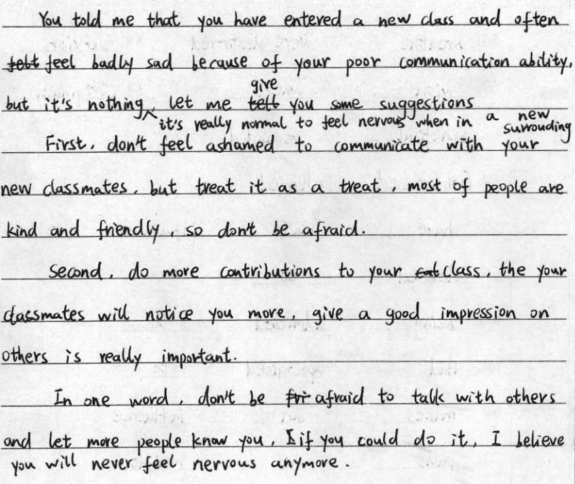 You told me that you have entered a new class and often
feel badly sad because of your poor communication ability,
but it's nothing, it's really normal to feel nervous when in a new surrouding let me give you some suggestions
First, don't feel ashamed to communicate with your
new classmates, but treat it as a treat, most of people are
kind and friendly, so don't be afraid.
Second, do more contributions to your class, the your
classmates will notice you more, give a good impression on
others is really important.
In one word, don't be afraid to talk with others
and let more people know you, if you could do it, I believe
you will never feel nervous anymore.